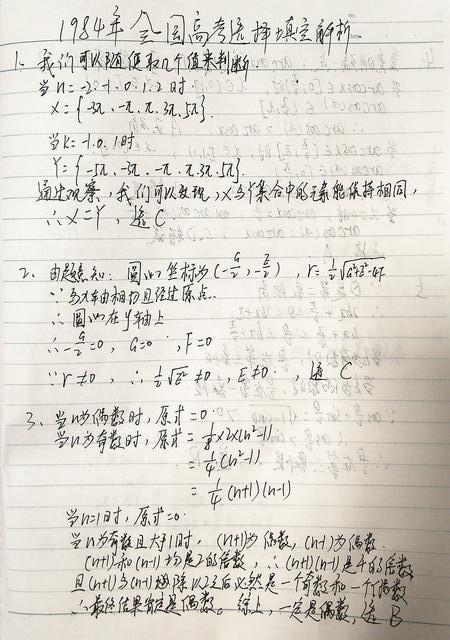 1984年全国高考选择填空解析
1、我们可以随便取几个值来判断
当n=-2.-1.0.1.2时
X={-3π.-π.π.3π.5π}.
当k=-1.0.1时
Y={-5π.-3π.-π.π.3π.5π}.
通过观察,我们可以发现,X与Y集合中的元素能保持相同,
∴X=Y,选C
2、由题意知:圆心坐标为(-G/2,-E/2),r=½√(G²+E²-4F)
∵与X轴相切且经过原点.
∴圆心在y轴上
∴-G/2=0,G=0,F=0
∵r≠0,∴½√E²≠0,E≠0.,选C
3、当n为偶数时,原式=0.
当n为奇数时,原式=⅛×2×(n²-1)
=¼(n²-1)
=¼(n+1)(n-1)
当n=1时,原式=0.
当n为奇数且大于1时,(n+1)为偶数,(n-1)为偶数.
(n+1)和(n-1)均是2的倍数,∴(n+1)(n-1)是4的倍数
且(n+1)与(n-1)除以2之后必然是一个奇数和一个偶数
∴最终结果肯定是偶数。综上,一定是偶数,选B